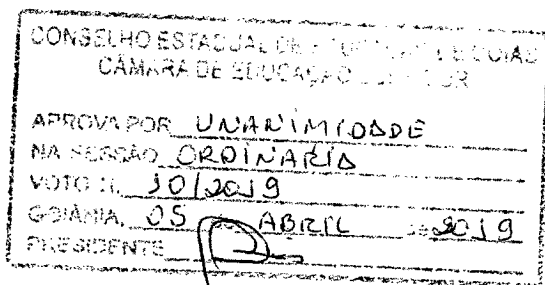 CONSELHO ESTADUAL DE EDUCAÇÃO DE GOIÁS
CÂMARA DE EDUCAÇÃO SUPERIOR
APROVA POR UNANIMIDADE
NA SESSÃO ORDINARIA
VOTO N. 10/2019
GOIÂNIA, 05 ABRIL DE 2019
PRESIDENTE